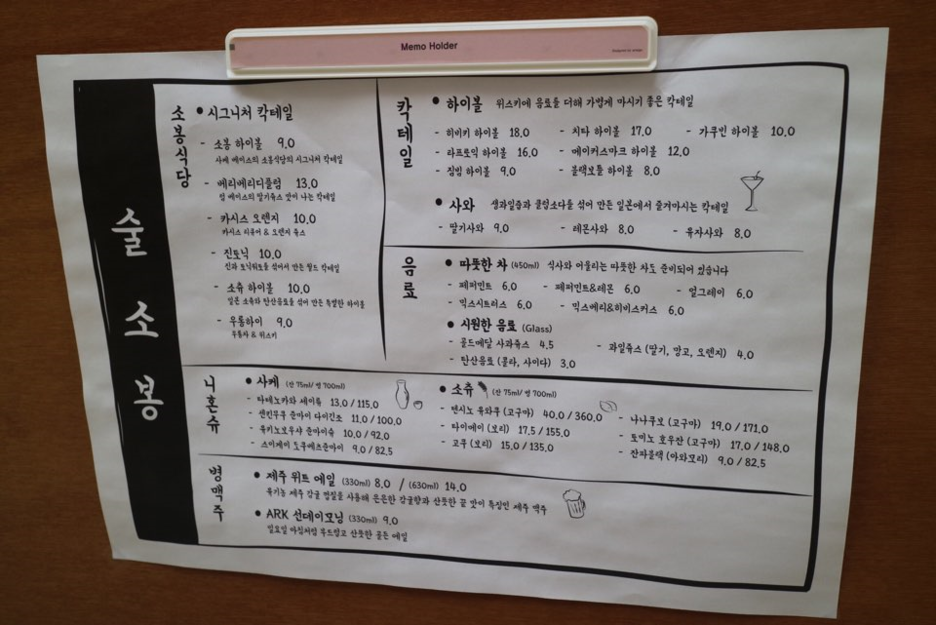 Memo Holder
술소봉
소봉식당
● 시그니처 칵테일
- 소봉 하이볼 9.0
사케 베이스의 소봉식당의 시그니처 칵테일
- 베리베리디플럼 13.0
럼 베이스의 딸기쥬스 맛이 나는 칵테일
- 카시스 오렌지 10.0
카시스 리큐어 & 오렌지 쥬스
- 진토닉 10.0
진과 토닉워토를 섞어서 만든 월드 칵테일
- 소츄 하이볼 10.0
일본 소츄와 탄산음료를 섞어 만든 특별한 하이볼
- 우롱하이 9.0
우롱차 & 위스키
칵테일
● 하이볼 위스키에 음료를 더해 가볍게 마시기 좋은 칵테일
- 히비키 하이볼 18.0 - 치타 하이볼 17.0 - 가쿠빈 하이볼 10.0
- 라프로익 하이볼 16.0 - 메이커스마크 하이볼 12.0
- 짐빔 하이볼 9.0 - 블랙보틀 하이볼 8.0
● 사와 생과일즙과 클럽소다를 섞어 만든 일본에서 즐겨마시는 칵테일
- 딸기사와 9.0 - 레몬사와 8.0 - 유자사와 8.0
음료
● 따뜻한 차 (450ml) 식사와 어울리는 따뜻한 차도 준비되어 있습니다
- 페퍼민트 6.0 - 페퍼민트&레몬 6.0 - 얼그레이 6.0
- 믹스시트러스 6.0 - 믹스베리&히비스커스 6.0
● 시원한 음료 (Glass)
- 골드메달 사과쥬스 4.5 - 과일쥬스 (딸기, 망고, 오렌지) 4.0
- 탄산음료 (콜라, 사이다) 3.0
니혼슈
● 사케 (잔 75ml/ 병 700ml)
- 타테노카와 세이류 13.0 / 115.0
- 센킨무쿠 준마이 다이긴죠 11.0 / 100.0
- 유키노보우샤 준마이슈 10.0 / 92.0
- 스미케이 도쿠베츠준마이 9.0 / 82.5
● 소츄 (잔 75ml/ 병 700ml)
- 텐시노 유와쿠 (고구마) 40.0 / 360.0 - 나나쿠보 (고구마) 19.0 / 171.0
- 타이메이 (보리) 17.5 / 155.0 - 토미노 호우잔 (고구마) 17.0 / 148.0
- 고쿠 (보리) 15.0 / 135.0 - 잔파블랙 (아와모리) 9.0 / 82.5
병맥주
● 제주 위트 에일 (330ml) 8.0 / (630ml) 14.0
유기농 제주 감귤 껍질을 사용해 은은한 감귤향과 산뜻한 끝 맛이 특징인 제주 맥주
● ARK 선데이모닝 (330ml) 9.0
일요일 아침처럼 부드럽고 산뜻한 골든 에일